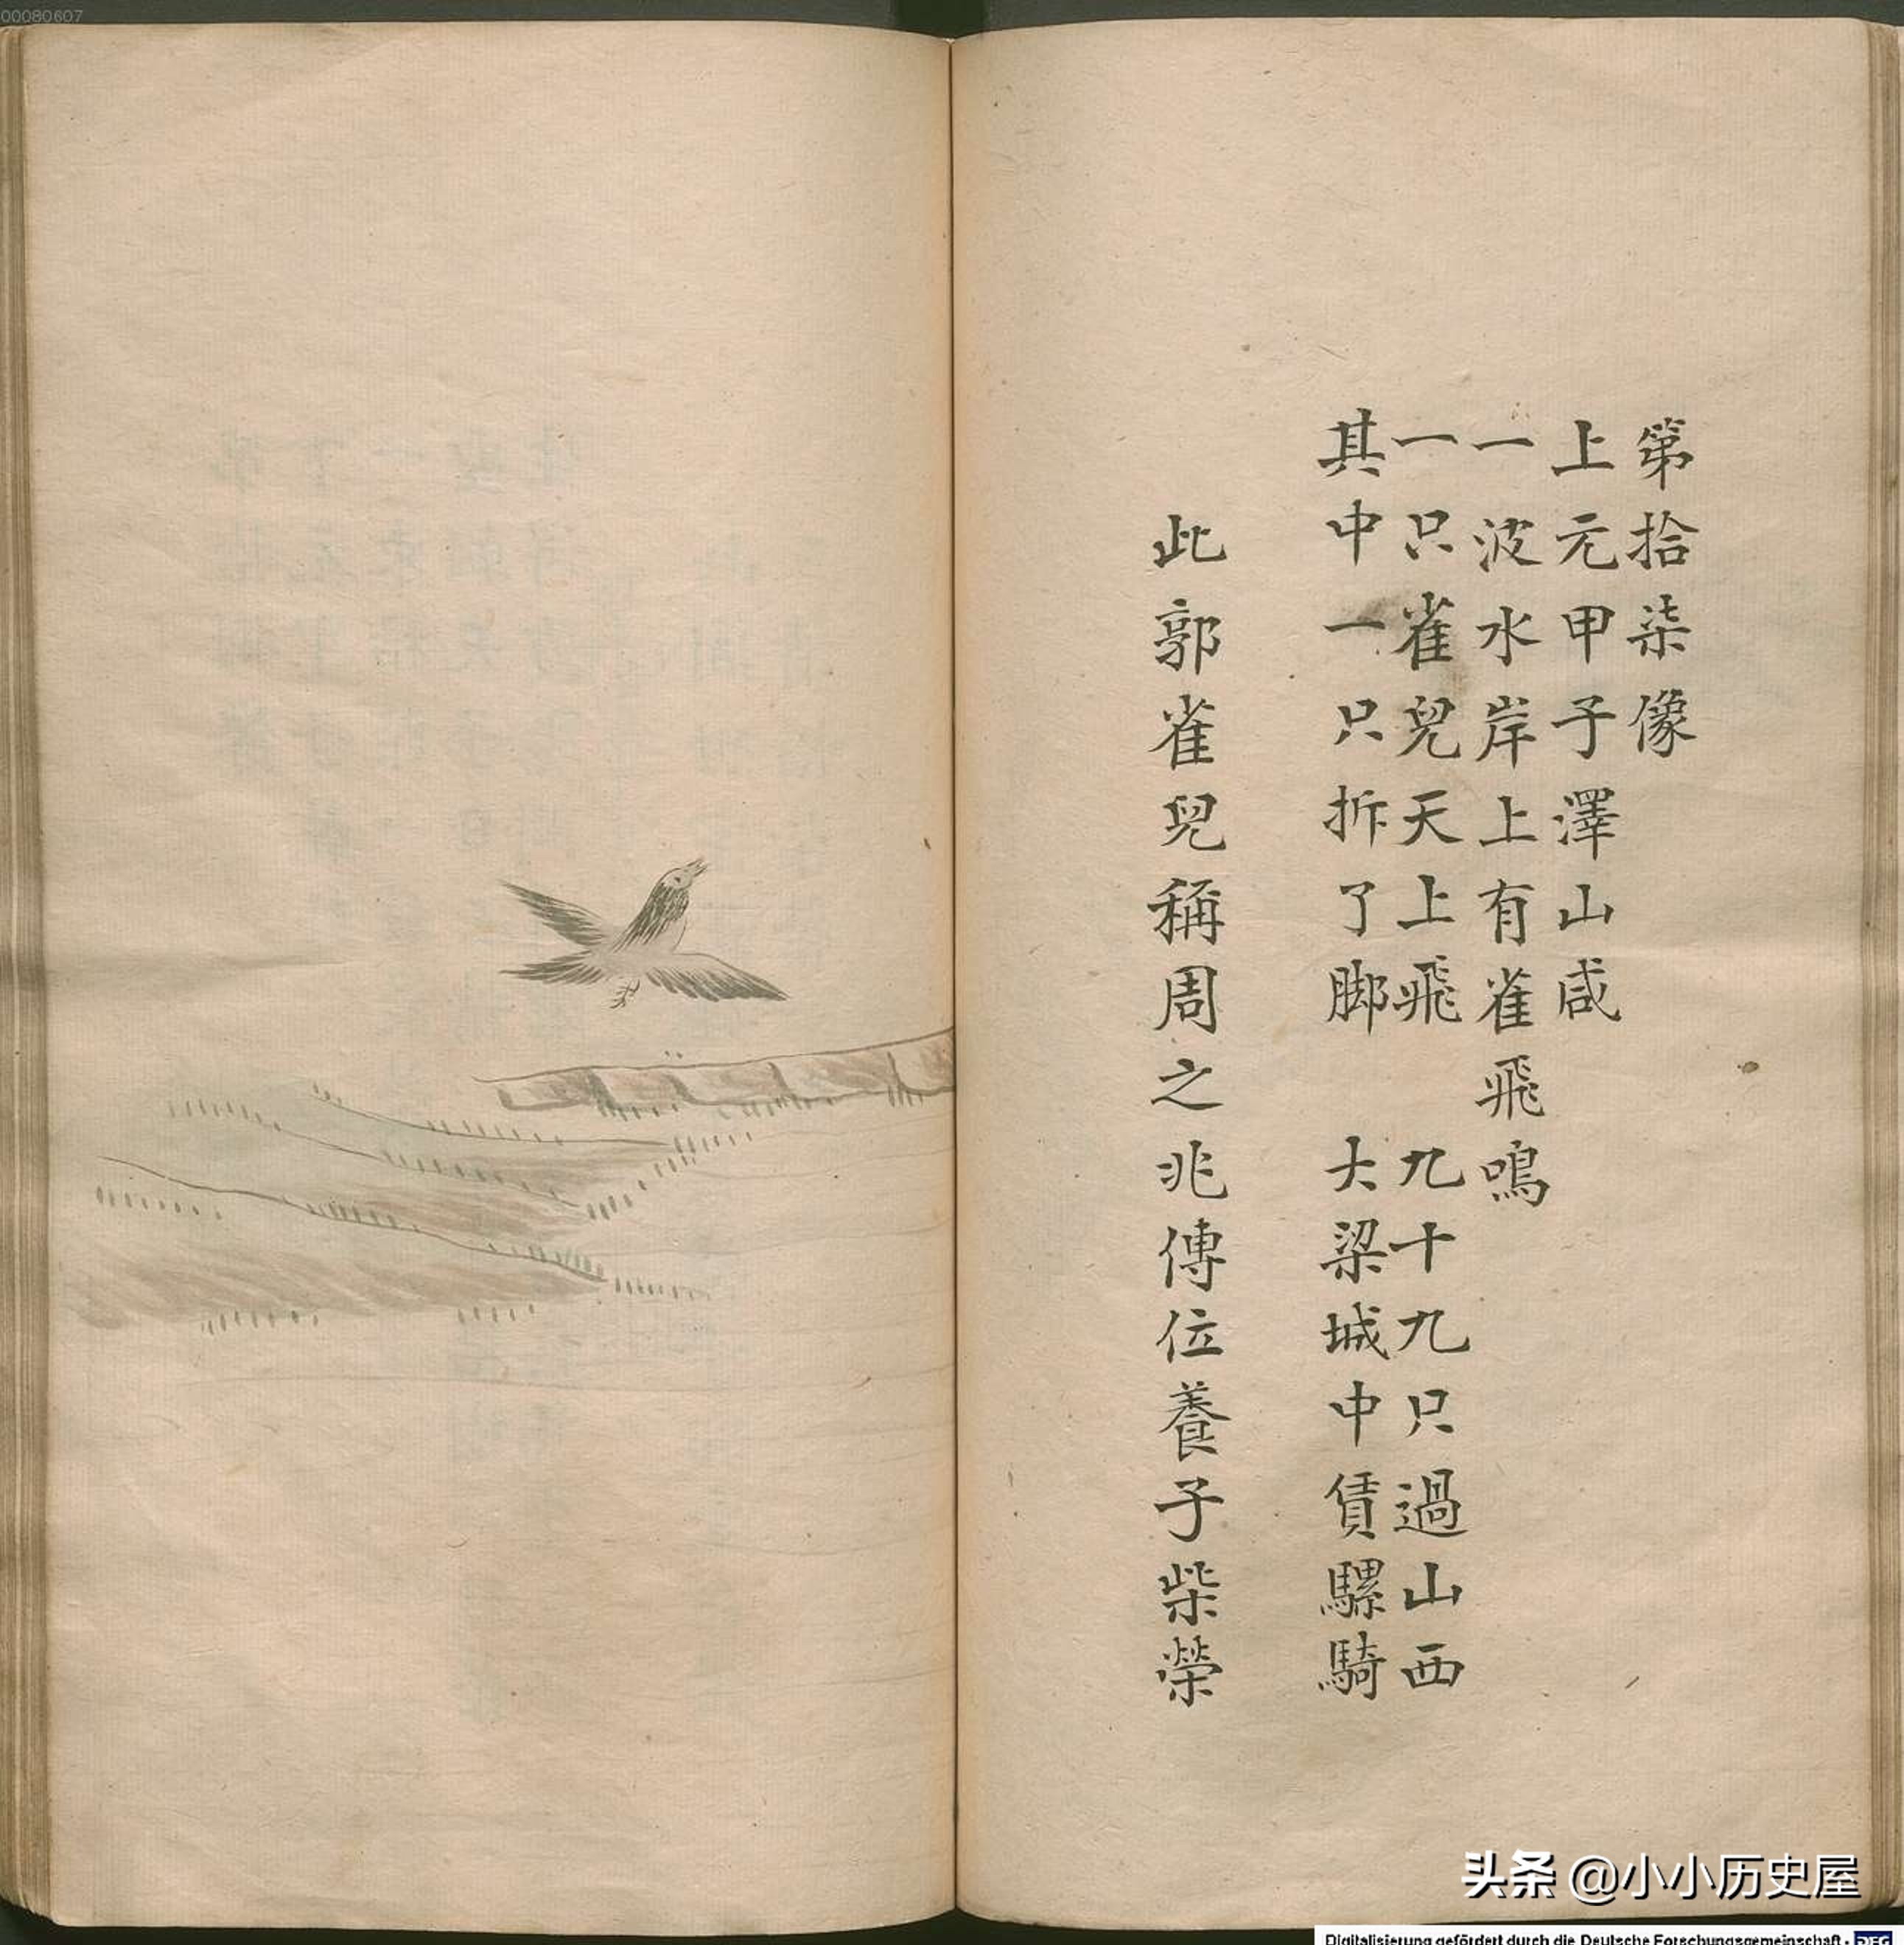 00080607
第拾柒像
上元甲子澤山咸
一波水岸上有雀飛鳴
一只雀兒天上飛 九十九只過山西
其中一只拆了脚 大梁城中賃騾騎
此郭雀兒稱周之兆傳位養子柴榮
头条 @小小历史屋
Digitalisierung gefördert durch die Deutsche Forschungsgemeinschaft - DFG